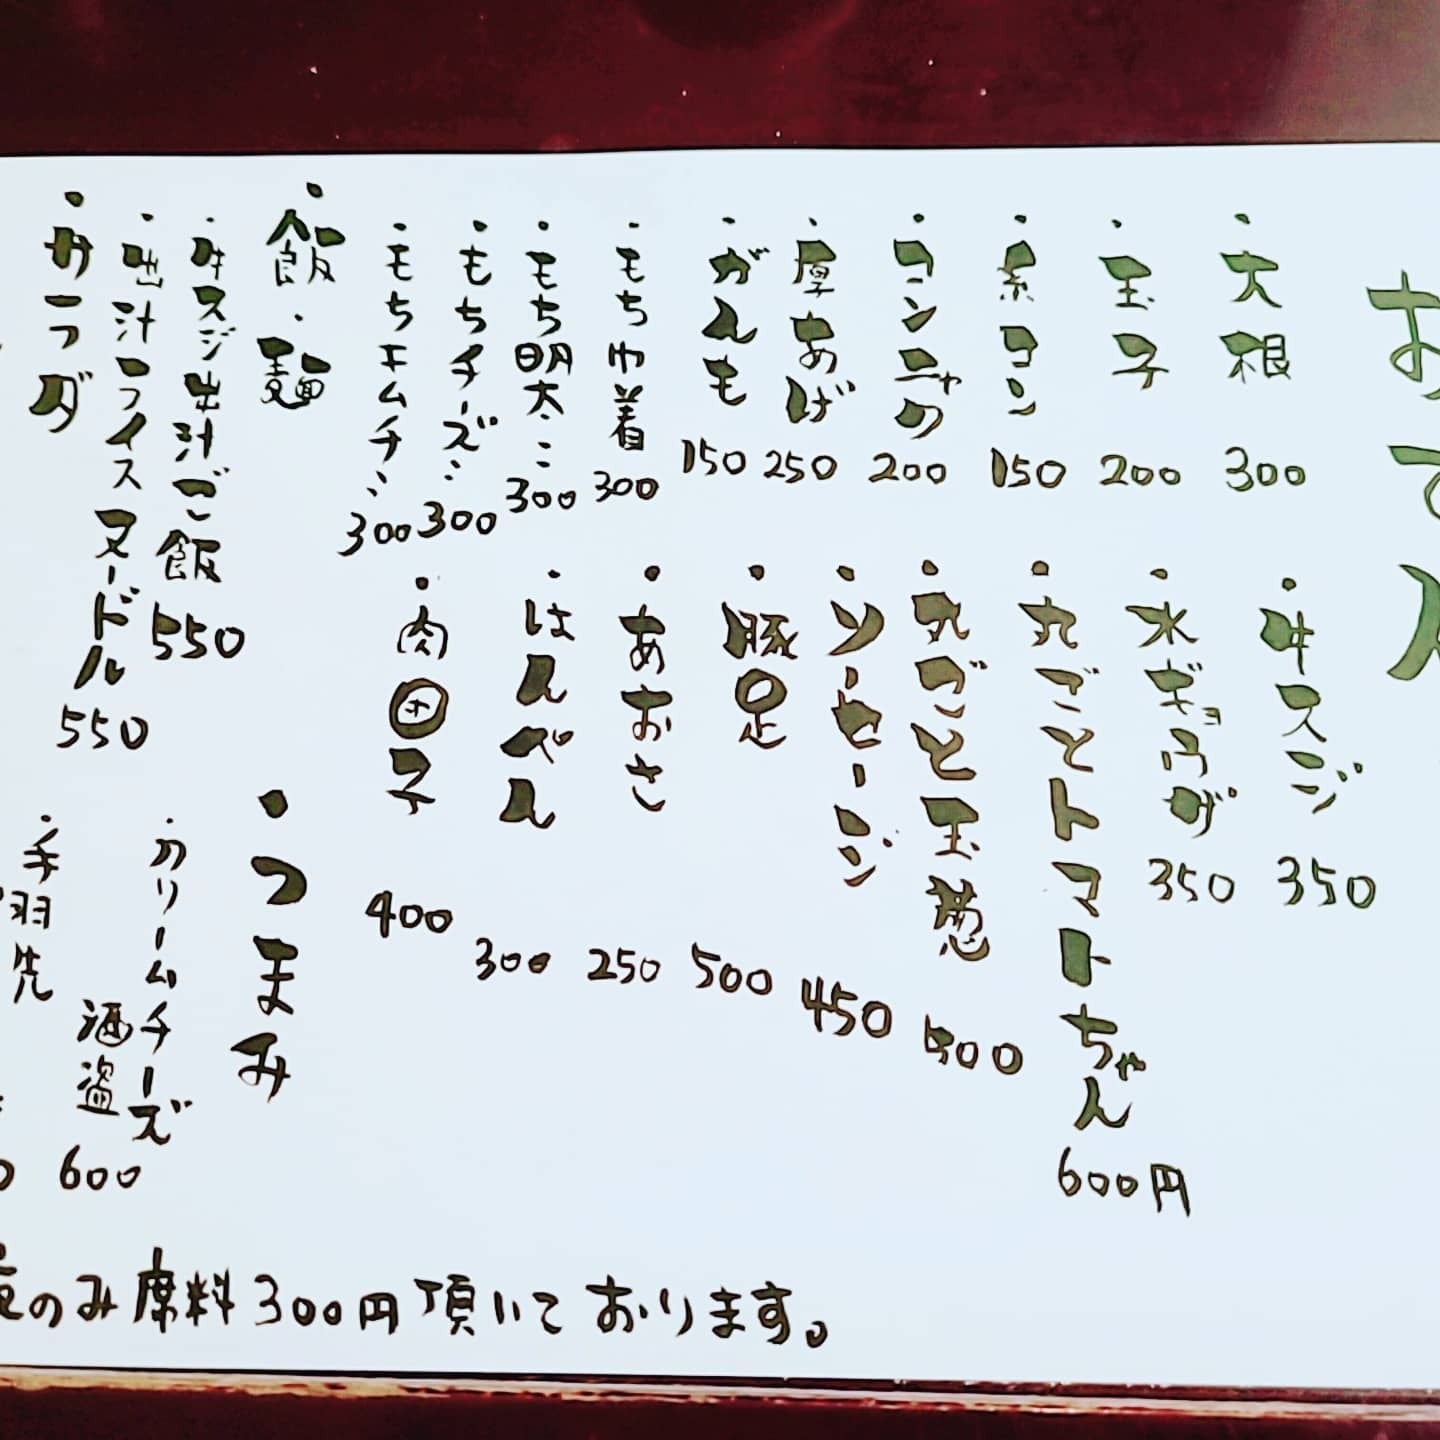 おでん
・大根 300
・玉子 200
・糸コン 150
・コンニャク 200
・厚あげ 250
・がんも 150
・もち巾着 300
・もち明太… 300
・もちチーズ… 300
・もちキムチ… 300
・牛スジ 350
・水ギョウザ 350
・丸ごとトマトちゃん 600円
・丸ごと玉葱 500
・ソーセージ 450
・豚足 500
・あおさ 250
・はんぺん 300
・肉団子 400
・飯・麺
・牛スジ出汁ご飯 550
・出汁ライスヌードル 550
・つまみ
・クリームチーズ
酒盗 600
・手羽先
・サラダ
夜のみ席料300円頂いております。